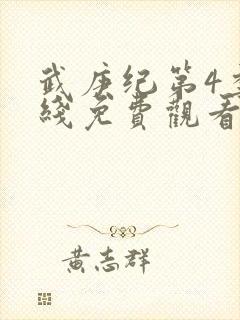 武庚纪第4季
綫免費觀看
黃志群